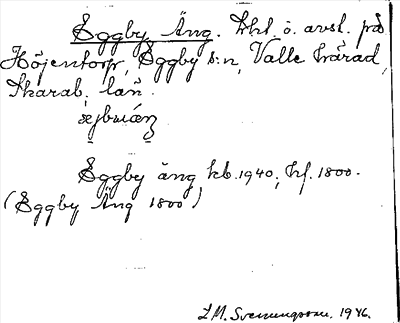 Eggby Äng. Lht. o. avst. på
Höjentorp, Eggby s:n, Valle härad,
Skarab. län.
Eggby äng kb. 1940; hf. 1800.
(Eggby Äng 1800)
I.M. Svenungsson. 1946.